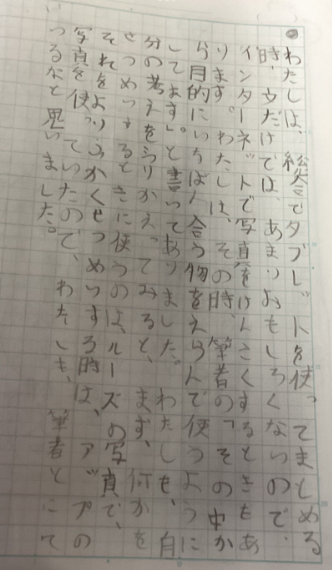 わたしは、総合でタブレットを使ってまとめる
時、文だけでは、あまりおもしろくないので、
インターネットで写真をけんさくするときもあ
ります。わたしは、その時、筆者の「その中か
ら目的にいちばん合う物をえらんで使うように
してます。」と言ってありました。わたしも、自
分の考えをふりかえってみると、まず、何かを
せつめいするときに使うのは、ルーズの写真で、
それをよりふかくせつめいする時は、アップの
写真を使っていたので、わたしも、筆者とにて
いるなと思いました。